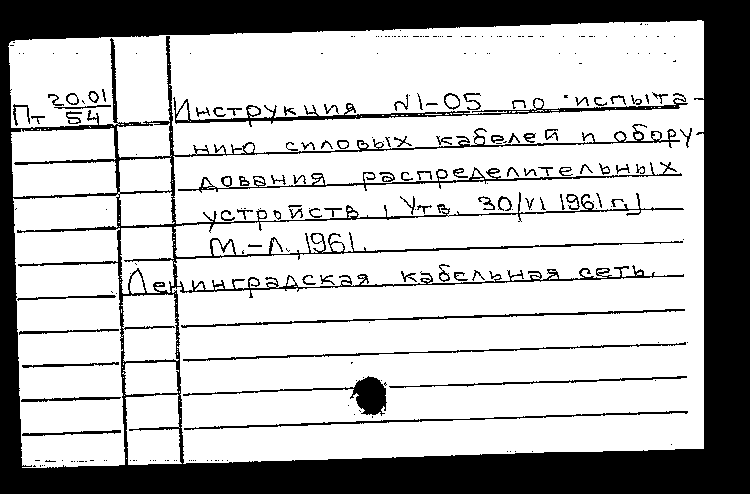 Пт 20.01/54
Инструкция №1-05 по испыта-
нию силовых кабелей и обору-
дования распределительных
устройств. [Утв. 30/VI 1961 г.]
М.-Л., 1961.
Ленинградская кабельная сеть.